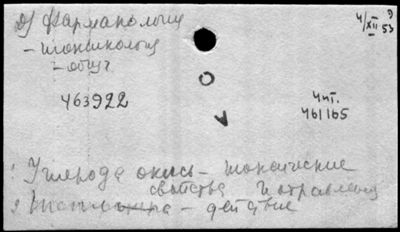 Д) Фармакология
4/XII 53
– токсикология
– общ.
463922
Чит.
461165
: Углерода окись – токсические
свойства и отравления
– действие